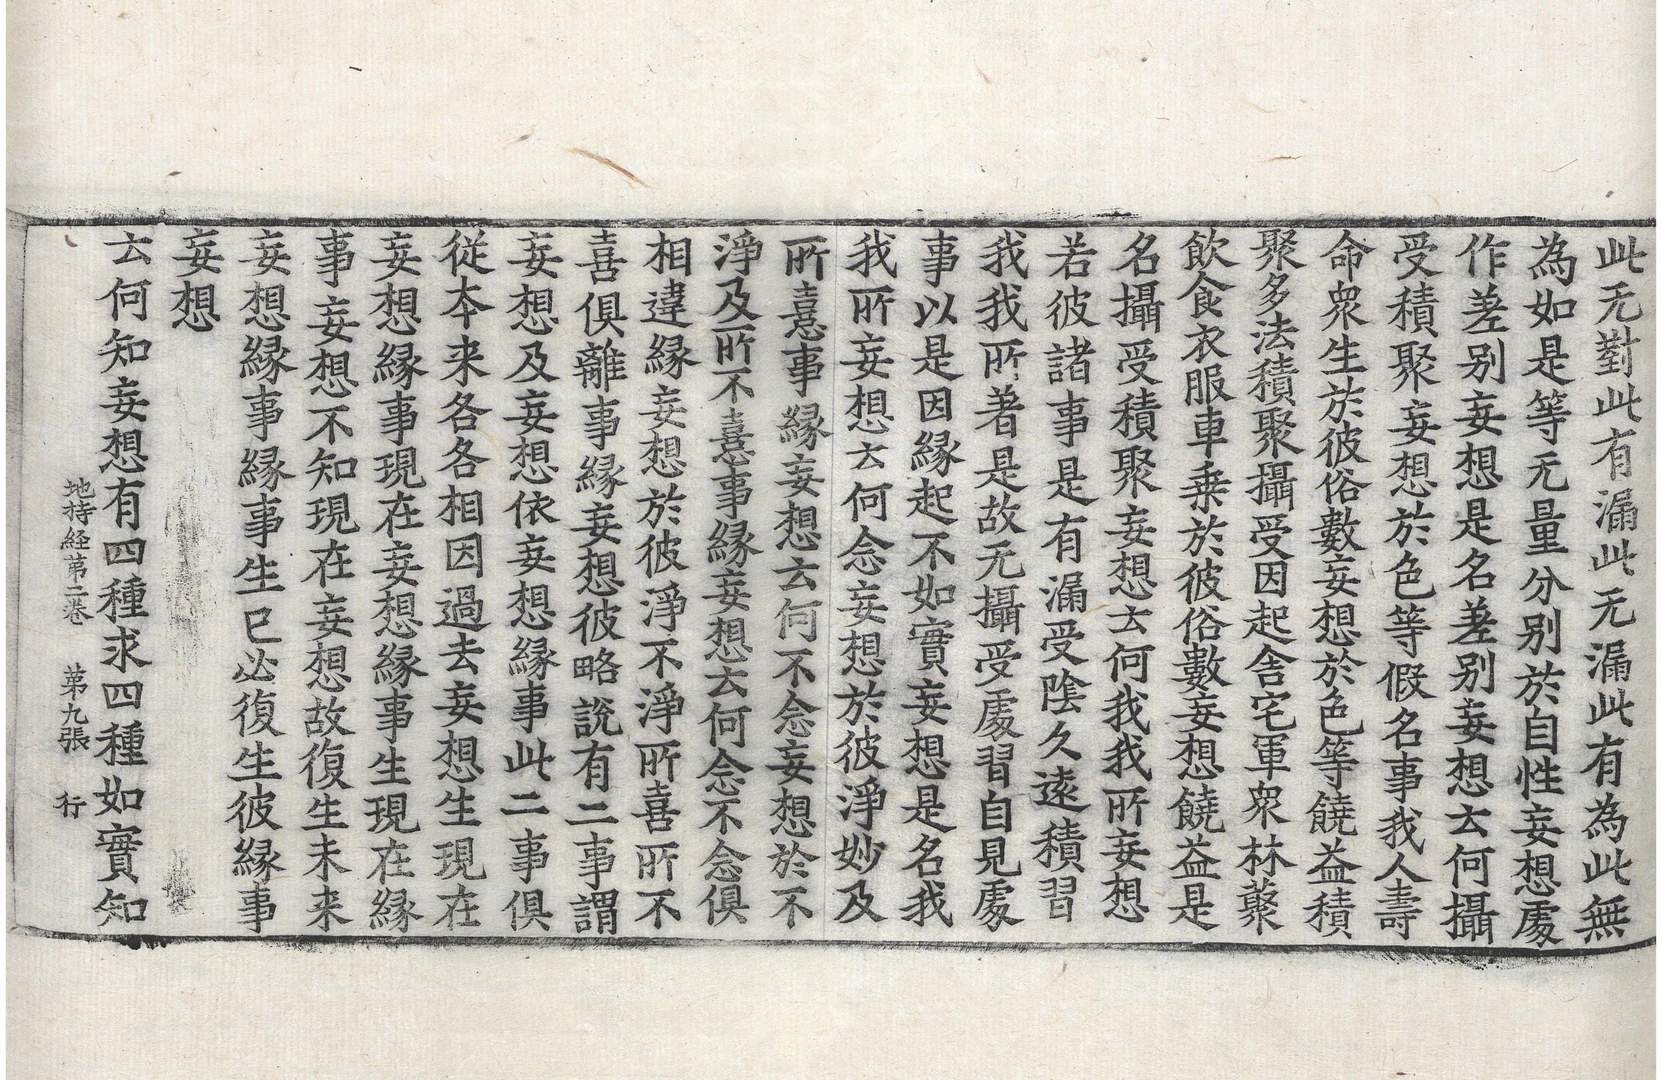 此无對此有漏此无漏此有為此無
為如是等无量分别於自性妄想處
作差别妄想是名差别妄想云何攝
受積聚妄想於色等假名事我人壽
命衆生於彼俗數妄想於色等饒益積
聚多法積聚攝受因起舎宅軍衆林藂
飲食衣服車乗於彼俗數妄想饒益是
名攝受積聚妄想云何我我所妄想
若彼諸事是有漏受陰久遠積習
我我所著是故无攝受處習自見處
事以是因縁起不如實妄想是名我
我所妄想云何念妄想於彼淨妙及
所憙事縁妄想云何不念妄想於不
淨及所不憙事縁妄想云何念不念俱
相違縁妄想於彼淨不淨所喜所不
喜俱離事縁妄想彼略說有二事謂
妄想及妄想依妄想縁事此二事俱
従本来各各相因過去妄想生現在
妄想縁事現在妄想縁事生現在縁
事妄想不知現在妄想故復生未来
妄想縁事縁事生已必復生彼縁事
妄想
云何知妄想有四種求四種如實知
地持経第二卷 第九張 行